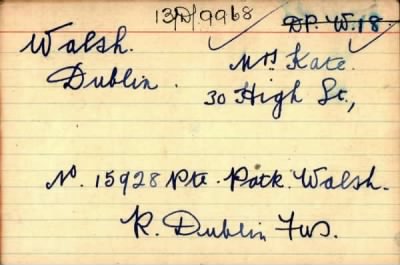 13/D/9968 D.P. W.18
Walsh. Mrs Kate.
Dublin. 30 High St.,
No. 15928 Pte. Patk. Walsh.
R. Dublin Fus.